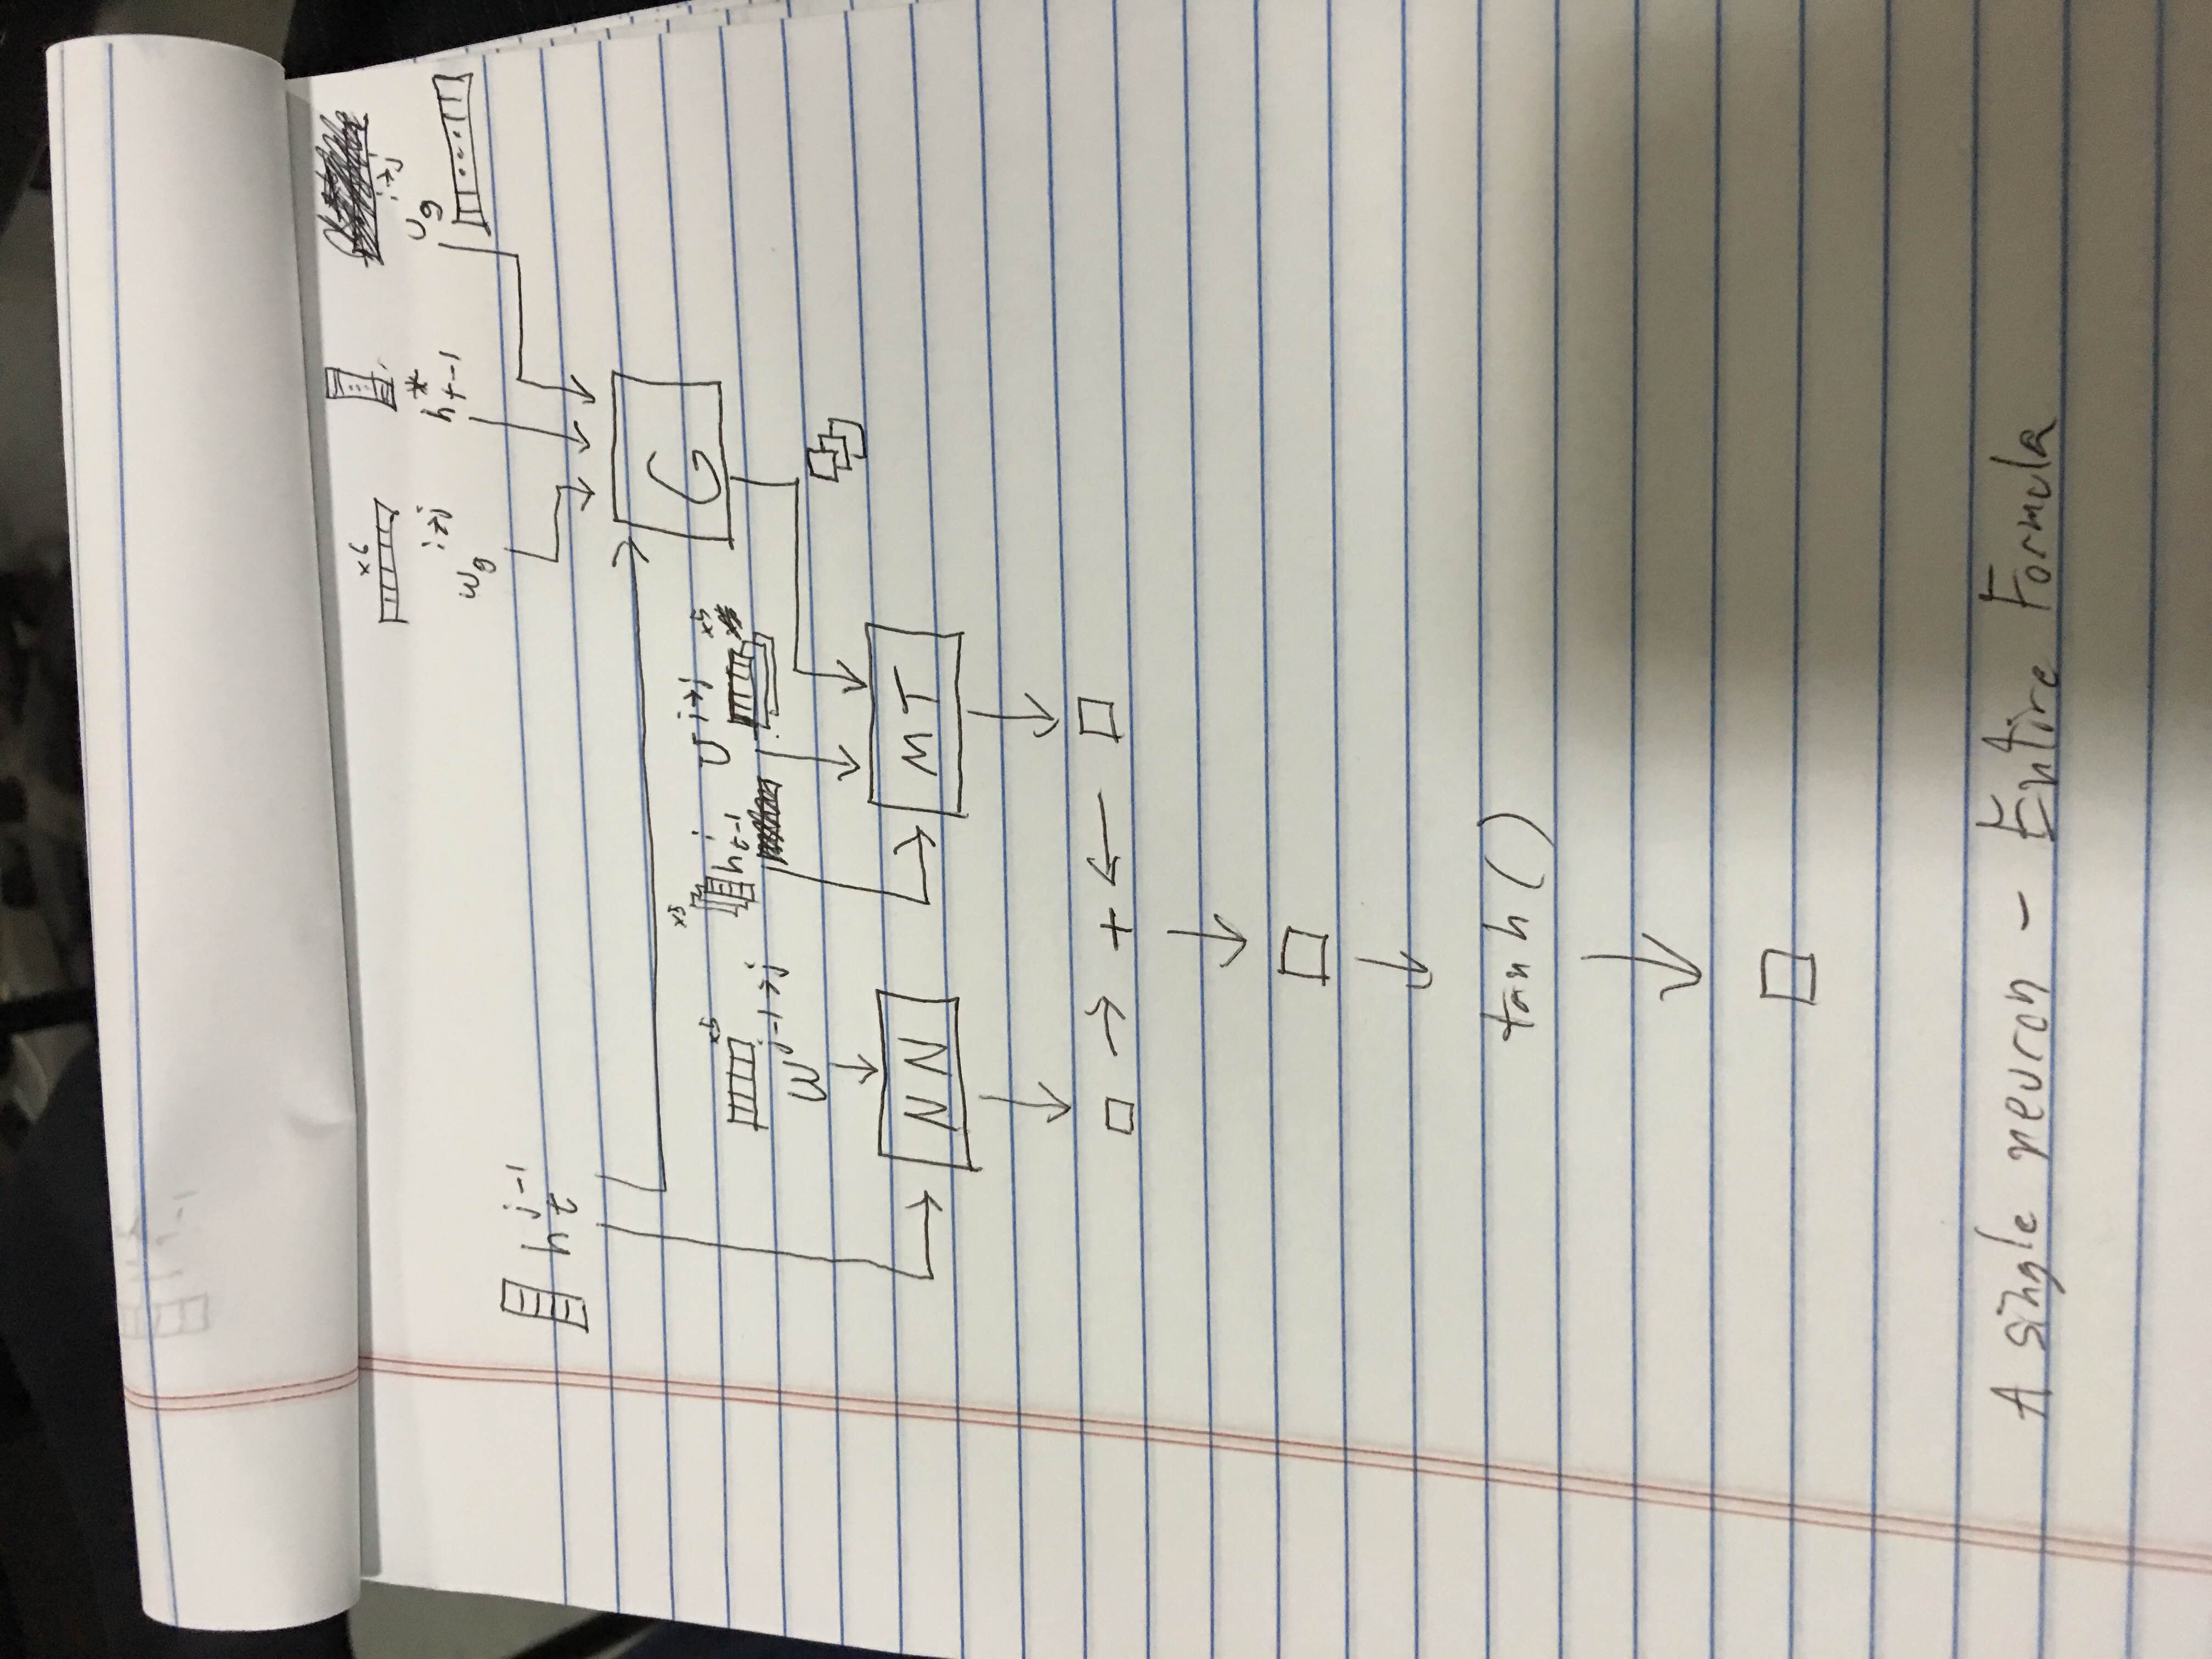 x6
w_g^{i→j}
h^*_{t-1}
U_g^{i→j}
h_t^{j-1}
G
x5
w^{j-1→j}
x5
h^i_{t-1}
U^{i→j}
x5
NN
MT
+
tanh()
A single neuron - Entire Formula